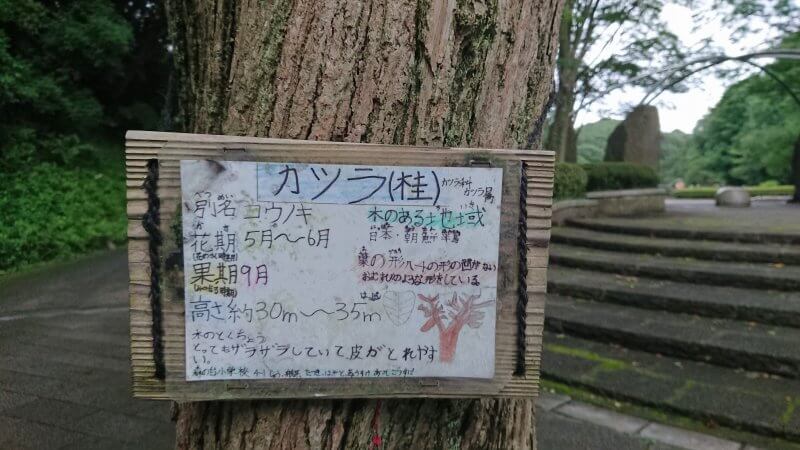 カツラ(桂) カツラ科
カツラ属
べつめい
別名 コウノキ
花期 5月〜6月
果期 9月
高さ約30m〜35m
木のある地域
日本・朝鮮
葉の形ハートの形の
おむすびのような形をしている
は
木のとくちょう
とってもザラザラしていて皮がとれやす
い。
森の台小学校